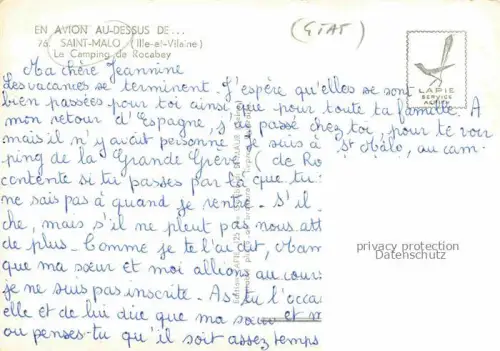 EN AVION AU-DESSUS DE...
76 SAINT-MALO (Ille-et-Vilaine)
Le Camping de Rocabey
LAPIE
SERVICE
Ma chère Jeannine
Les vacances se terminent. J'espère qu'elles se sont
bien passées pour toi ainsi que pour toute ta famille. A
mon retour d'Espagne, j'ai passé chez toi, pour te voir
mais il n'y avait personne. Je suis à St Malo, au cam-
ping de la Grande Grève (de Ro
contente si tu passes par là que tu
ne sais pas à quand je rentre. S'il
che, mais s'il ne pleut pas nous att
de plus. Comme je te l'ai dit, Mam
que ma sœur et moi allions au cour
je ne suis pas inscrite. As-tu l'occa
elle et de lui dire que ma sœur et m
ou penses-tu qu'il soit assez temps
privacy protection
Datenschutz